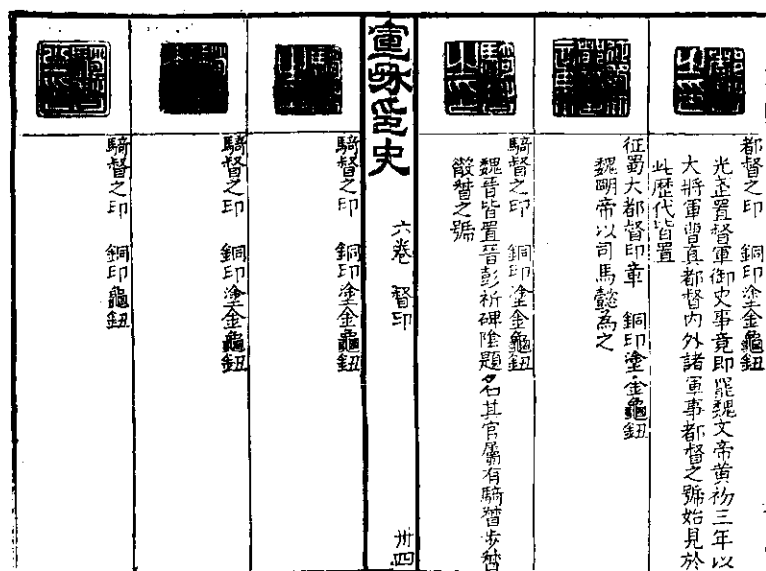 都督之印　銅印塗金龜鈕
光武置督軍御史事竟即罷魏文帝黃初三年以
大將軍曹真都督内外諸軍事都督之號始見於
此歴代皆置
征蜀大都督印章　銅印塗金龜鈕
魏明帝以司馬懿為之
騎督之印　銅印塗金龜鈕
魏晉皆置晉彭祈碑陰題名其官屬有騎督步督
散督之號
六卷　督印
卅四
騎督之印　銅印塗金龜鈕
騎督之印　銅印塗金龜鈕
騎督之印　銅印龜鈕